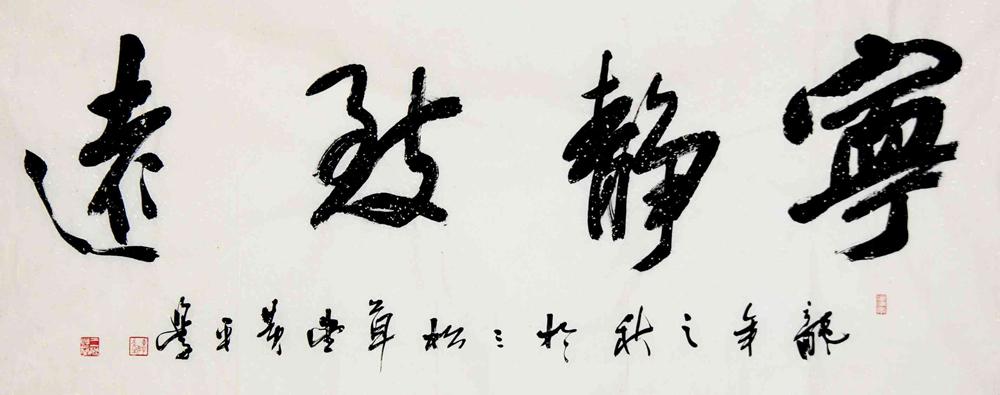 寧靜致遠
龍年之秋於三松草堂黄平學